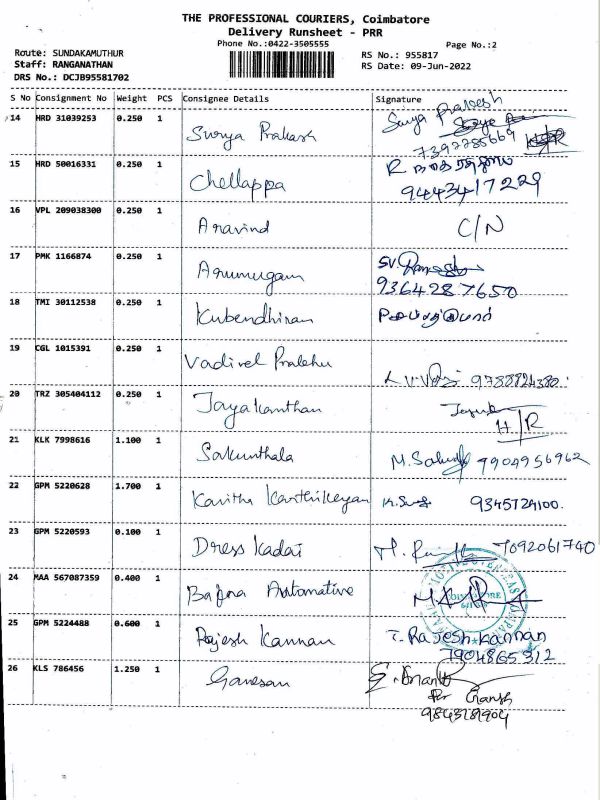 THE PROFESSIONAL COURIERS, Coimbatore
Delivery Runsheet - PRR
Phone No.:0422-3505555
Page No.:2
Route: SUNDAKAMUTHUR
RS No.: 955817
Staff: RANGANATHAN
RS Date: 09-Jun-2022
DRS No.: DCJB95581702
S No Consignment No Weight PCS Consignee Details Signature
14 HRD 31039253 0.250 1 Surya Prakash Surya Prakash
7397785669
15 HRD 50016331 0.250 1 Chellappa R
9443417229
16 VPL 209038300 0.250 1 Aravind C/N
17 PMK 1166874 0.250 1 Arumugam SV.
9364287650
18 TMI 30112538 0.250 1 Kubendhiran
19 CGL 1015391 0.250 1 Vadivel Prabhu
20 TRZ 305404112 0.250 1 Jayakanthan
H/R
21 KLK 7998616 1.100 1 Sakunthala M. 9904956962
22 GPM 5220628 1.700 1 Kavitha Karthikeyan 9345724100.
23 GPM 5220593 0.100 1 Dress Kadai 7092061740
24 MAA 567087359 0.400 1 Bajna Automative
25 GPM 5224488 0.600 1 Rajesh Kannan T. Rajesh Kannan
7904865312
26 KLS 786456 1.250 1 Ganesan
for Ganesh